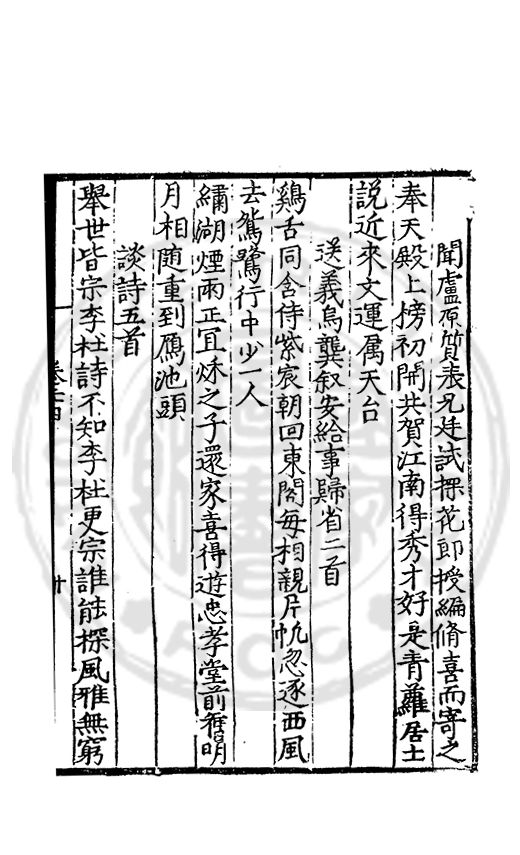 聞盧原質表兄廷試探花即授編脩喜而寄之
奉天殿上榜初開共賀江南得秀才好是青蘿居士
説近來文運属天台
送義烏龔叙安給事歸省二首
鷄舌同含侍紫宸朝回東閣毎相親片帆忽逐西風
去鴛鷺行中少一人
繡湖煙雨正宜秌之子還家喜得遊忠孝堂前看明
月相随重到鴈池頭
談詩五首
舉世皆宗李杜詩不知李杜更宗誰能探風雅無窮
卷二十四
十